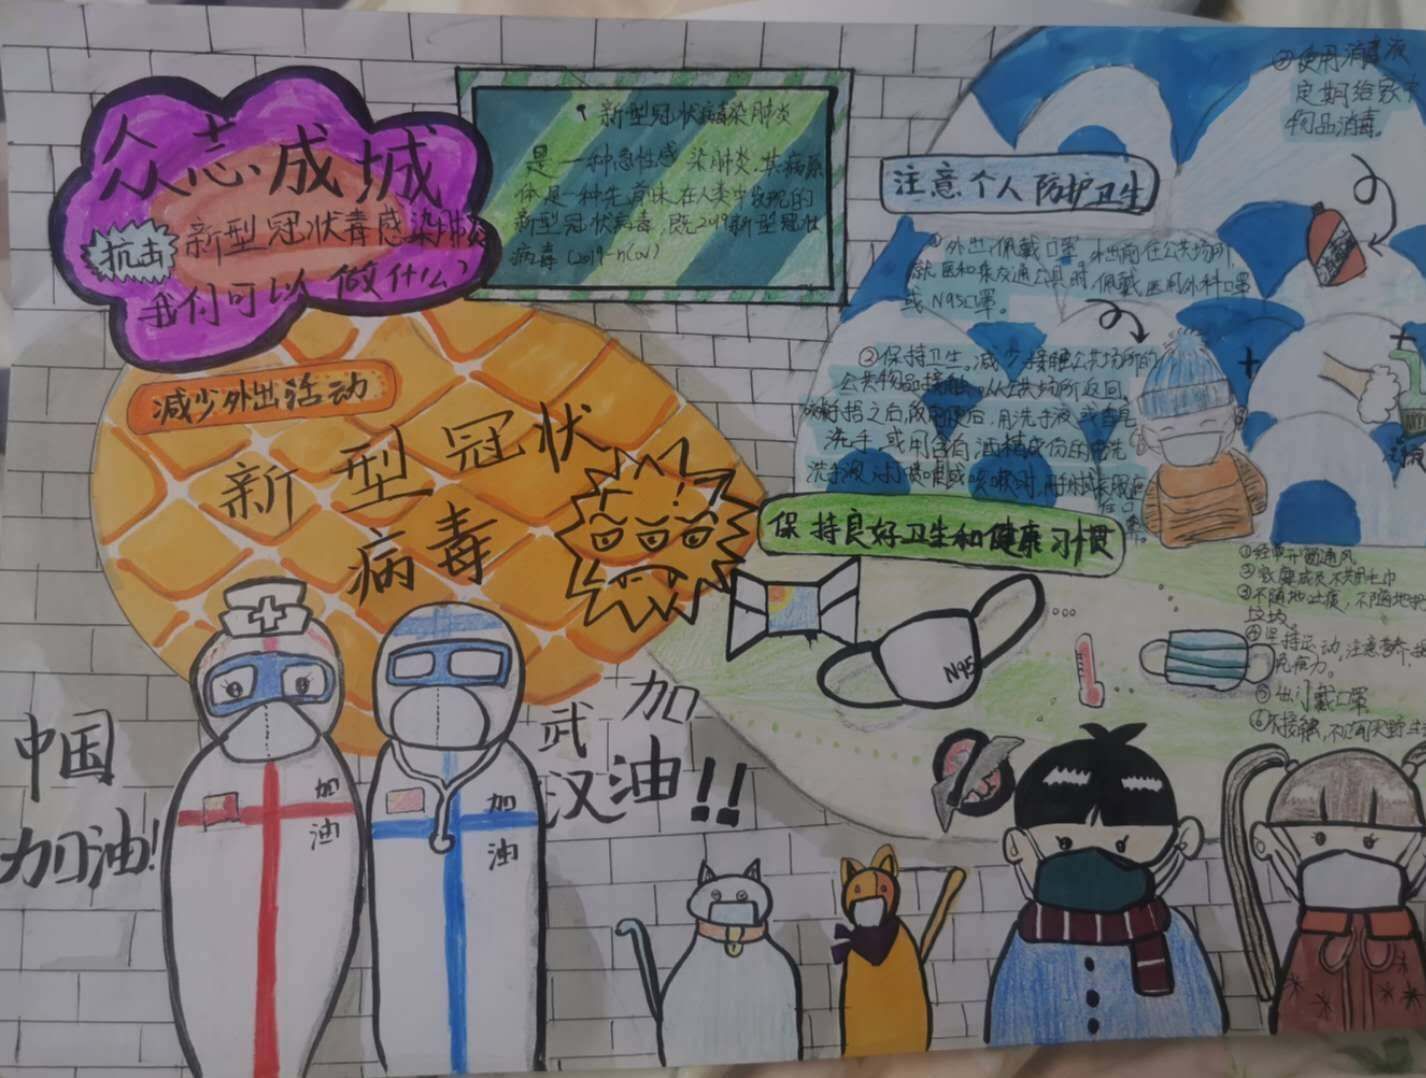 众志成城
抗击
新型冠状毒感染肺炎
我们可以做什么?
新型冠状病毒染肺炎
是一种急性感染肺炎.其病原
体是一种先前未在人类中发现的
新型冠状病毒,既2019新型冠状
病毒(2019-nCoV)
减少外出活动
新型冠状
病毒
注意个人防护卫生
①外出佩戴口罩.外出前往公共场所,
就医和乘交通公具时,佩戴医用外科口罩
或N95口罩。
②保持卫生,减少接触公共场所的
公共物品接触.从公共场所返回,
咳嗽手捂之后,饭前便后,用洗手液或香皂
洗手,或用含有酒精成份的免洗
洗手液
③使用消毒液
定期给家中
物品消毒。
保持良好卫生和健康习惯
N95
①经常开窗通风
②家庭成员不共用毛巾
③不随地吐痰,不随地扔
垃圾。
④坚持运动,注意营养,提
免疫力。
⑤出门戴口罩
⑥不接触,不
武汉
加油!!
中国
加油!
加油
加油